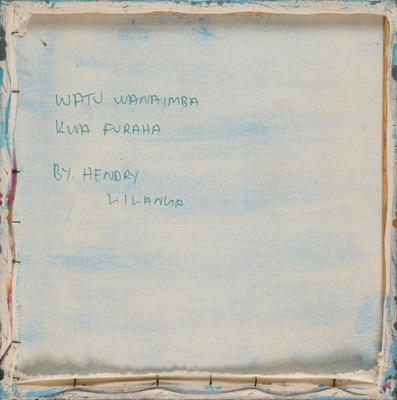 WATU WANAIMBA
KWA FURAHA
BY. HENDRY
LILANGA